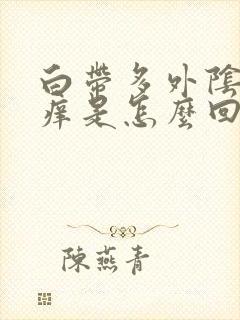 白帶多外陰
痒是怎麼回
陳燕青